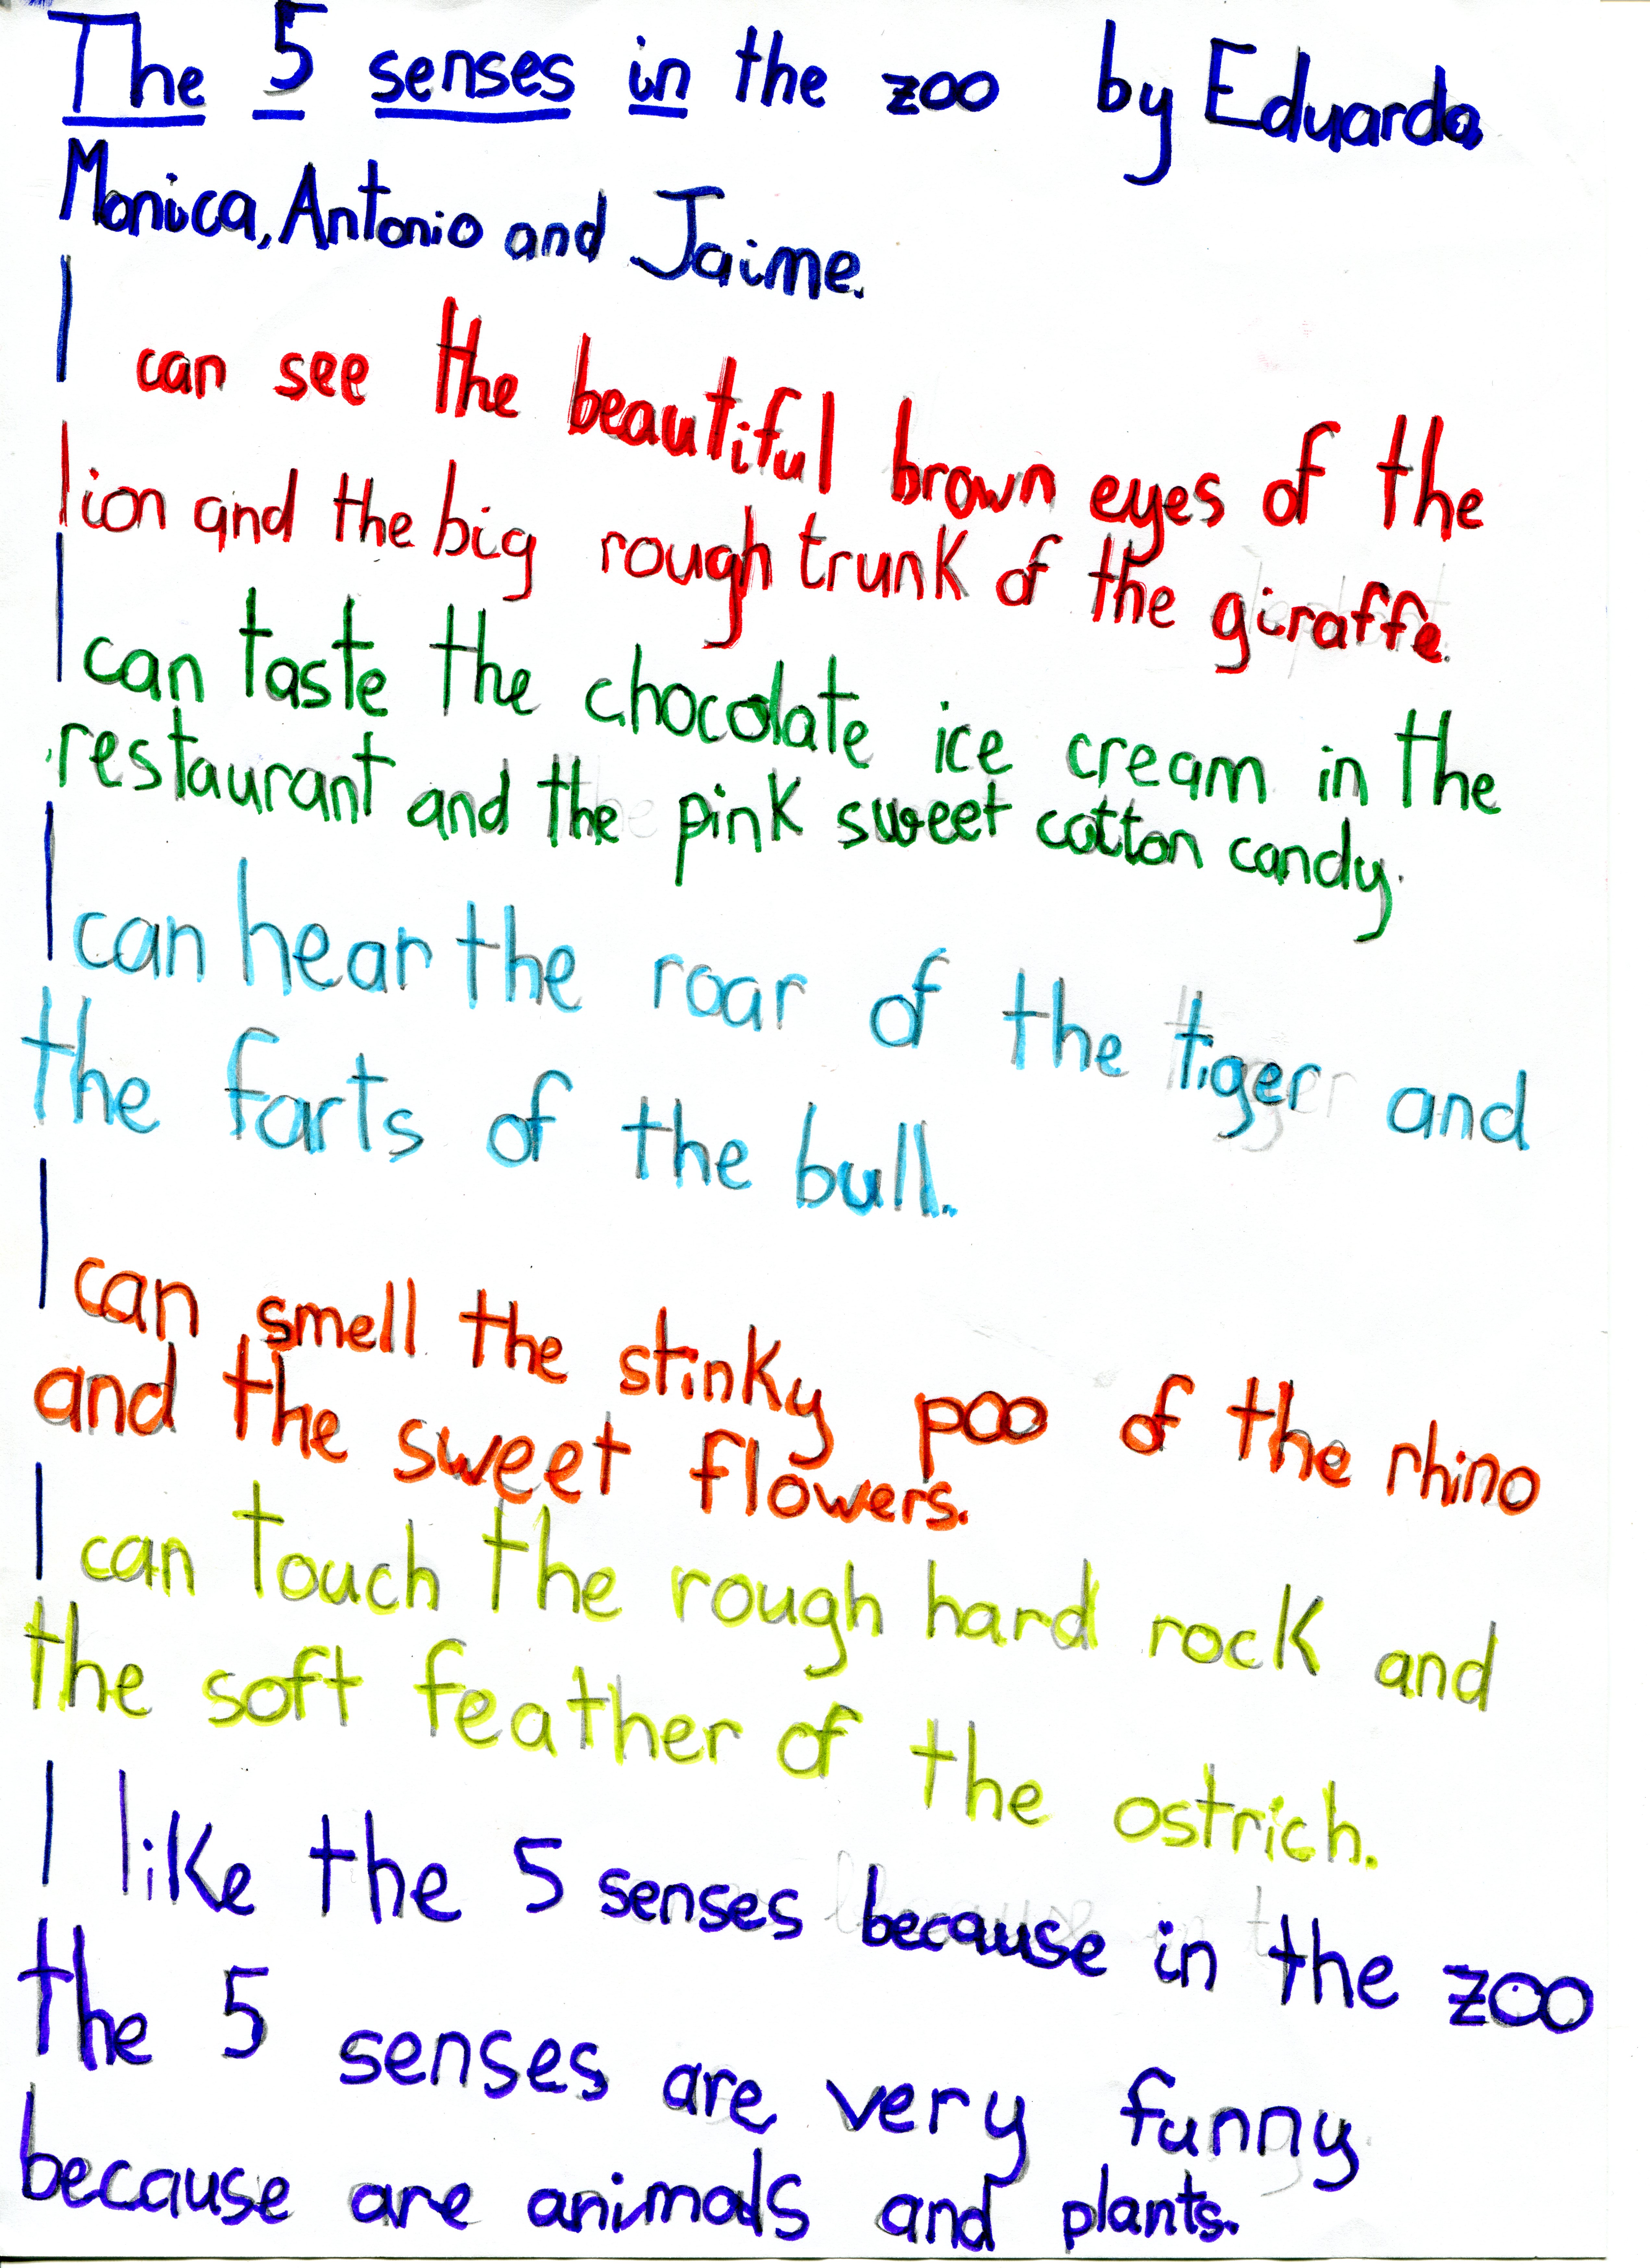 The 5 senses in the zoo by Eduardo
Monica, Antonio and Jaime.
I can see the beautiful brown eyes of the
lion and the big rough trunk of the giraffe.
I can taste the chocolate ice cream in the
restaurant and the pink sweet cotton candy.
I can hear the roar of the tiger and
the farts of the bull.
I can smell the stinky poo of the rhino
and the sweet flowers.
I can touch the rough hard rock and
the soft feather of the ostrich.
I like the 5 senses because in the zoo
the 5 senses are very funny
because are animals and plants.